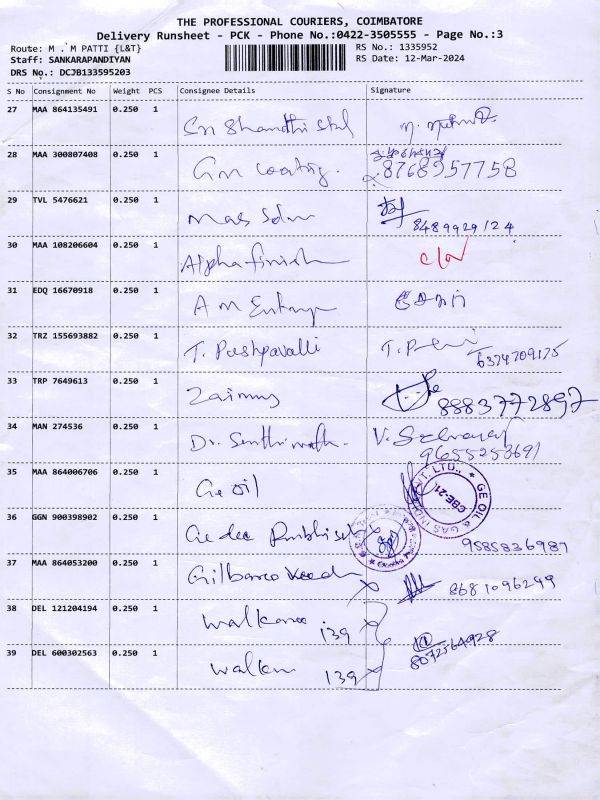 THE PROFESSIONAL COURIERS, COIMBATORE
Delivery Runsheet - PCK - Phone No.:0422-3505555 - Page No.:3
Route: M . M PATTI {L&T}
RS No.: 1335952
Staff: SANKARAPANDIYAN
RS Date: 12-Mar-2024
DRS No.: DCJB133595203
S No Consignment No Weight PCS Consignee Details Signature
27 MAA 864135491 0.250 1 Sri Shandhi
28 MAA 300807408 0.250 1 GM coating. 8768957758
29 TVL 5476621 0.250 1 Mas 8489929124
30 MAA 108206604 0.250 1 Alpha finish
31 EDQ 16670918 0.250 1 A M
32 TRZ 155693882 0.250 1 T. Pushpavalli T. 6374709175
33 TRP 7649613 0.250 1 8883772897
34 MAN 274536 0.250 1 Dr. V. 9655253691
35 MAA 864006706 0.250 1 Ge oil
GE OIL & GAS CBE-21.
36 GGN 900398902 0.250 1 Ge dee 9585836987
37 MAA 864053200 0.250 1 Gilbarco 8681096299
38 DEL 121204194 0.250 1 139
8072564928
39 DEL 600302563 0.250 1 139